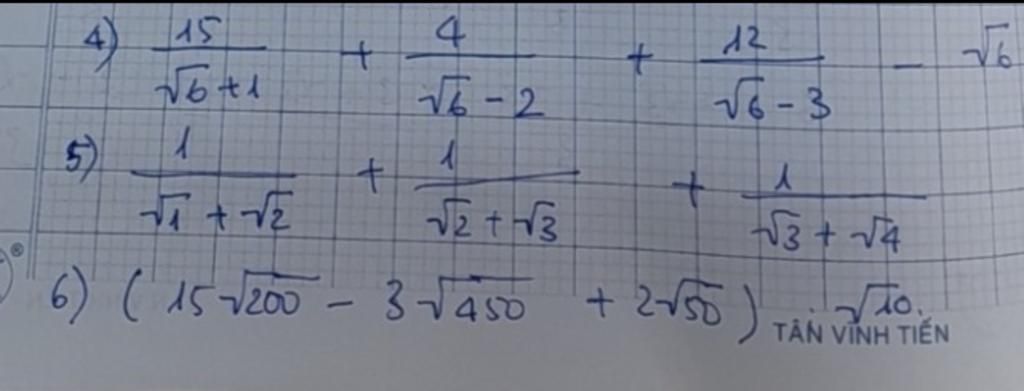 4) 15/(√6+1) + 4/(√6-2) + 12/(√6-3) - √6
5) 1/(√1+√2) + 1/(√2+√3) + 1/(√3+√4)
6) (15√200 - 3√450 + 2√50) . √10.
TÂN VĨNH TIẾN
®